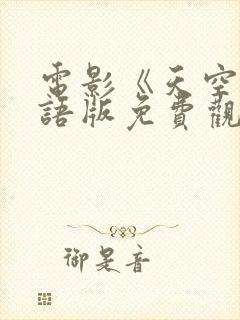 電影《天空
語版免費觀
御是音